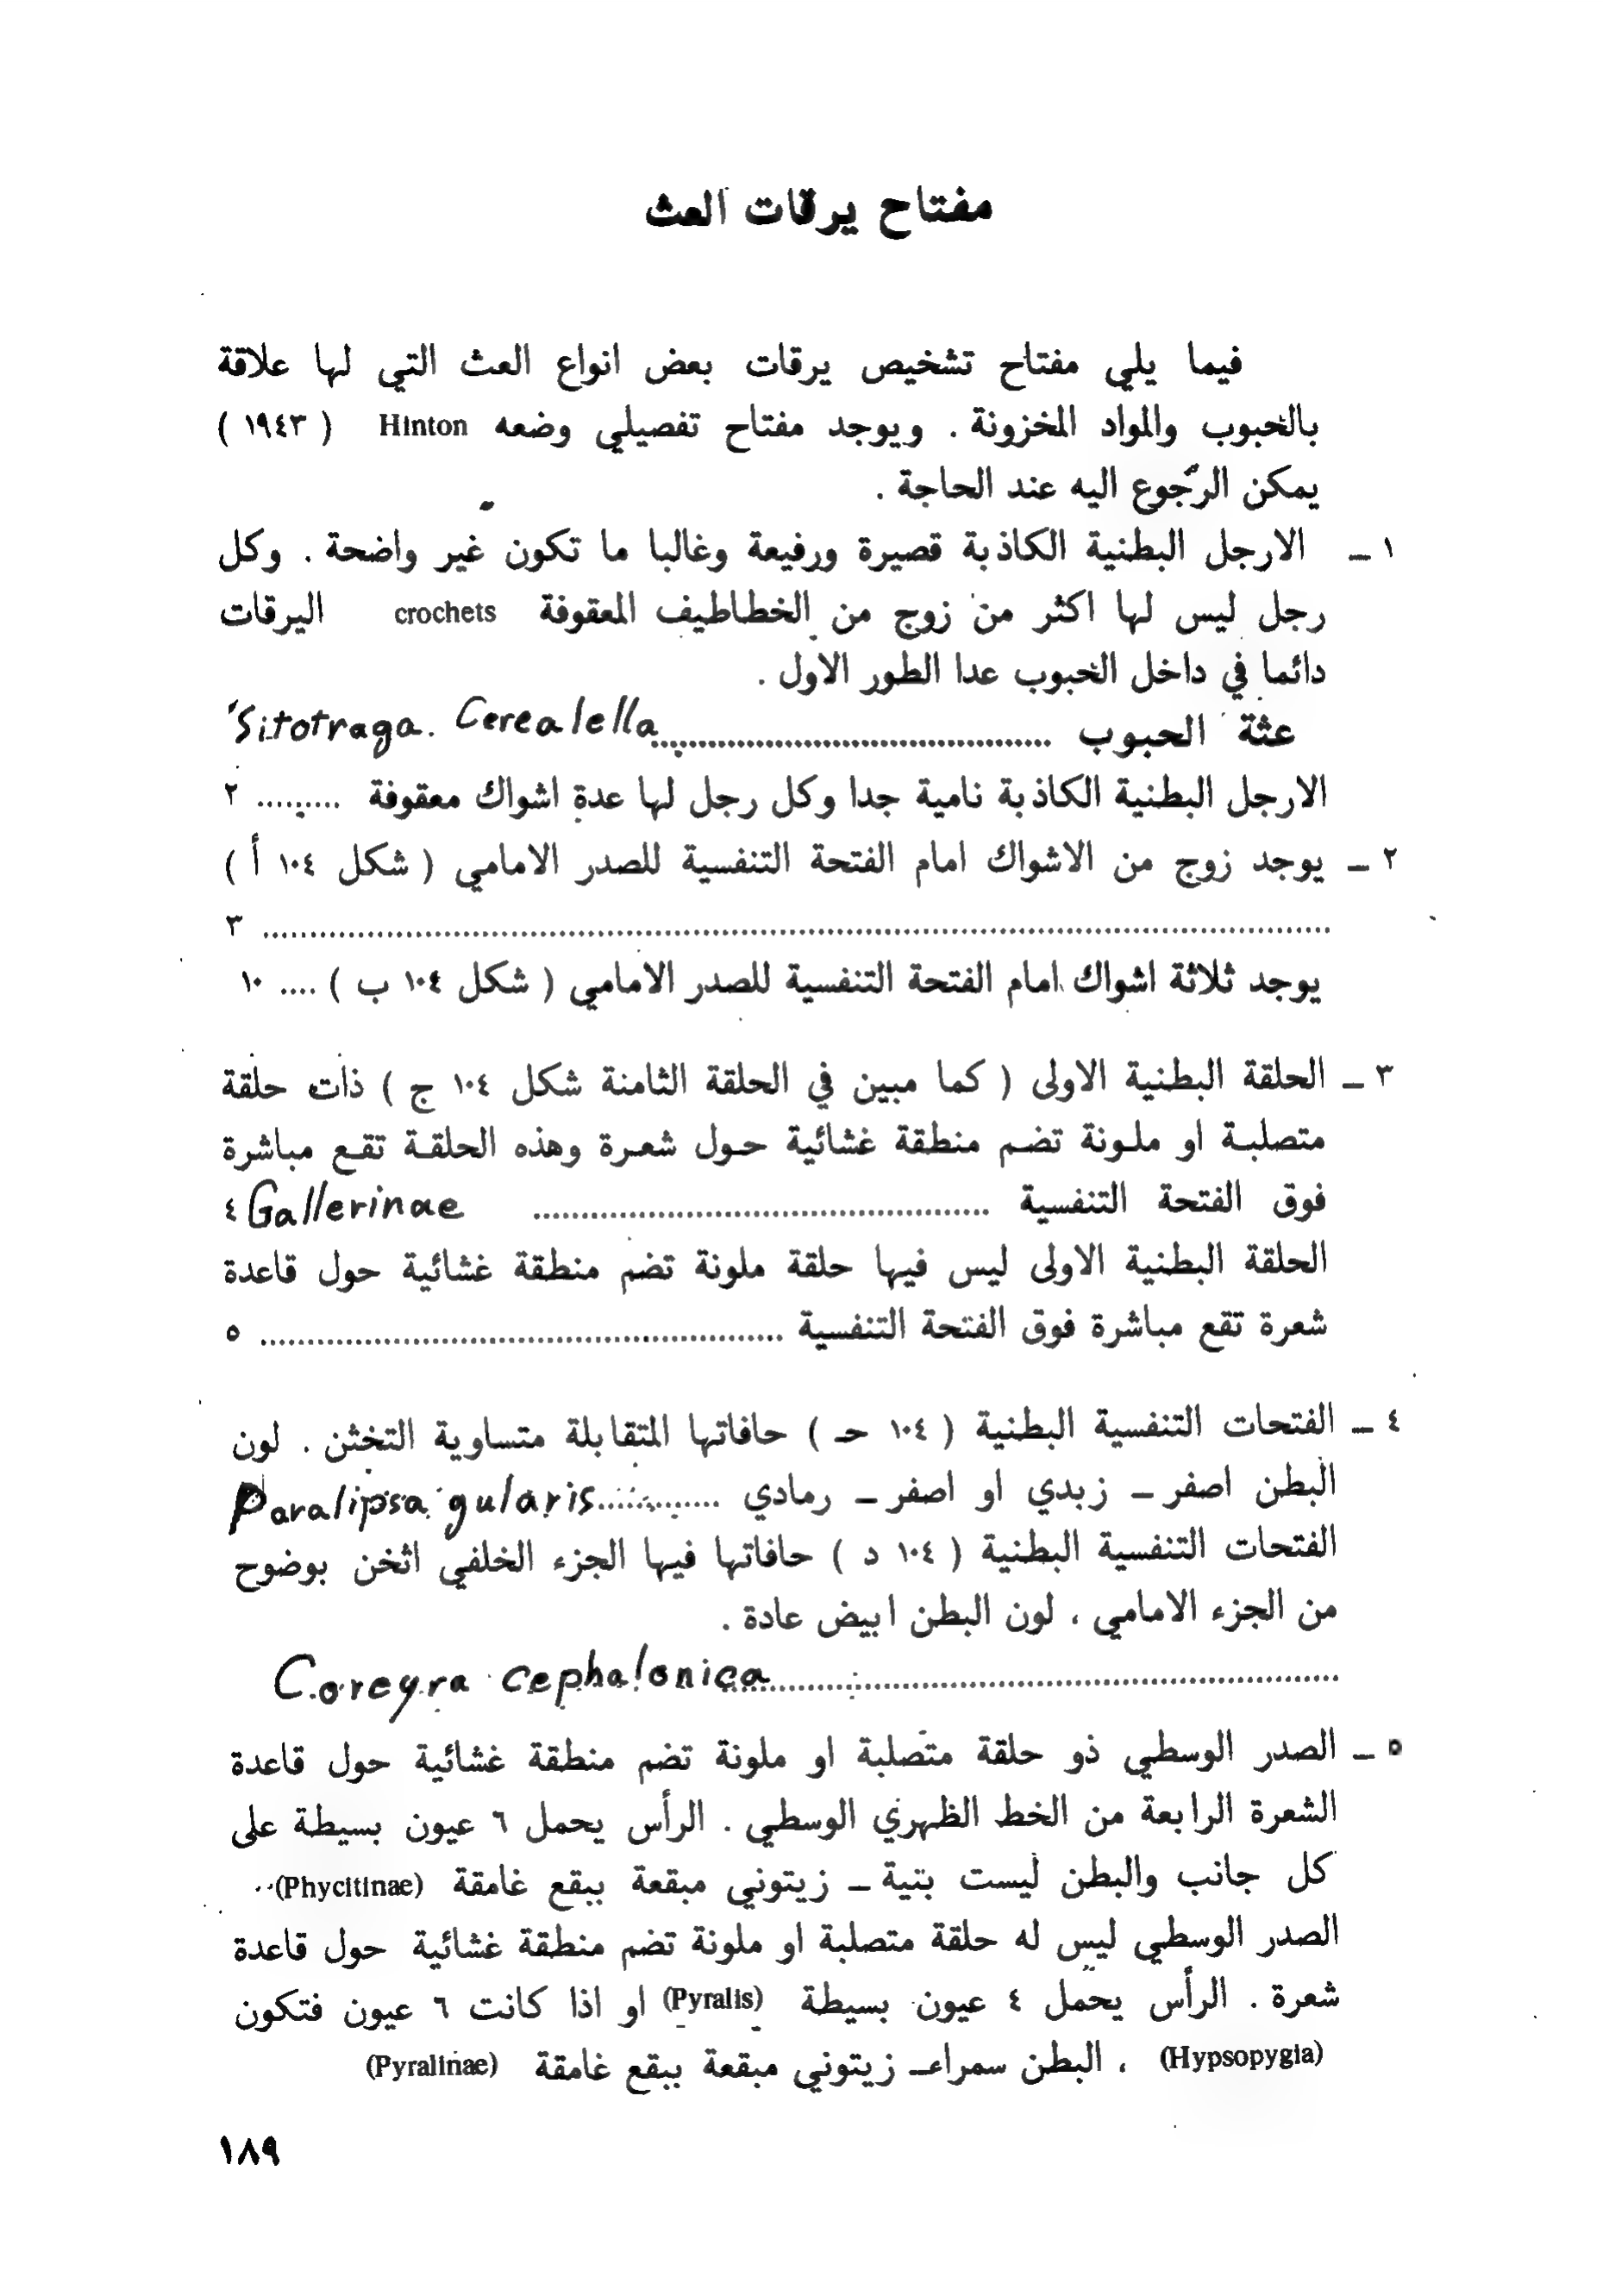 مفتاح يرقات العث
فيما يلي مفتاح تشخيص يرقات بعض انواع العث التي لها علاقة
بالحبوب والمواد المخزونة . ويوجد مفتاح تفصيلي وضعه Hinton ( ١٩٤٣ )
يمكن الرجوع اليه عند الحاجة .
١ ــ الارجل البطنية الكاذبة قصيرة ورفيعة وغالبا ما تكون غير واضحة . وكل
رجل ليس لها اكثر من زوج من الخطاطيف المعقوفة crochets اليرقات
دائما في داخل الحبوب عدا الطور الاول .
عثة الحبوب ........................................ Sitotraga. Cerealella
الارجل البطنية الكاذبة نامية جدا وكل رجل لها عدة اشواك معقوفة ......... ٢
٢ ــ يوجد زوج من الاشواك امام الفتحة التنفسية للصدر الامامي ( شكل ١٠٤ أ )
........................................................................ ٣
يوجد ثلاثة اشواك امام الفتحة التنفسية للصدر الامامي ( شكل ١٠٤ ب ) .... ١٠
٣ ــ الحلقة البطنية الاولى ( كما مبين في الحلقة الثامنة شكل ١٠٤ ج ) ذات حلقة
متصلبـة او ملـونة تضـم منطقة غشائية حـول شعـرة وهذه الحلقـة تقـع مباشرة
فوق الفتحة التنفسية .............................................. Gallerinae ٤
الحلقة البطنية الاولى ليس فيها حلقة ملونة تضم منطقة غشائية حول قاعدة
شعرة تقع مباشرة فوق الفتحة التنفسية .................................................. ٥
٤ ــ الفتحات التنفسية البطنية ( ١٠٤ حـ ) حافاتها المتقابلة متساوية التخثن . لون
البطن اصفر ــ زبدي او اصفر ــ رمادي ............ Paralipsa gularis
الفتحات التنفسية البطنية ( ١٠٤ د ) حافاتها فيها الجزء الخلفي اثخن بوضوح
من الجزء الامامي ، لون البطن ابيض عادة .
............................................................ Corcyra cephalonica
٥ ــ الصدر الوسطي ذو حلقة متصلبة او ملونة تضم منطقة غشائية حول قاعدة
الشعرة الرابعة من الخط الظهري الوسطي . الرأس يحمل ٦ عيون بسيطة على
كل جانب والبطن ليست بتية ــ زيتوني مبقعة ببقع غامقة (Phycitinae)..
الصدر الوسطي ليس له حلقة متصلبة او ملونة تضم منطقة غشائية حول قاعدة
شعرة . الرأس يحمل ٤ عيون بسيطة (Pyralis) او اذا كانت ٦ عيون فتكون
(Hypsopygia) ، البطن سمراءــ زيتوني مبقعة ببقع غامقة (Pyralinae)
١٨٩